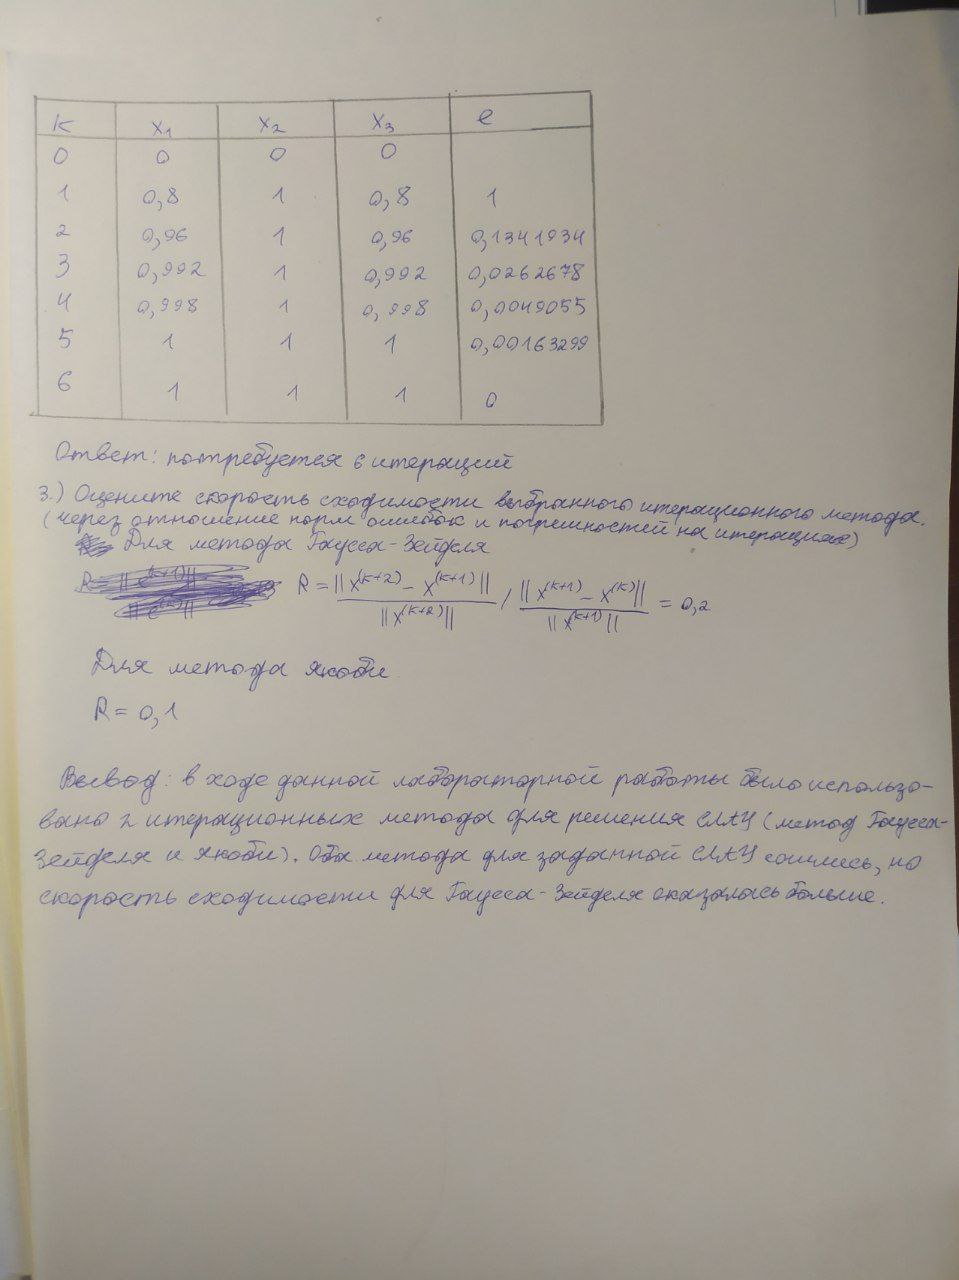 k x₁ x₂ x₃ e
0 0 0 0
1 0,8 1 0,8 1
2 0,96 1 0,96 0,1341934
3 0,992 1 0,992 0,0262678
4 0,998 1 0,998 0,0049055
5 1 1 1 0,00163299
6 1 1 1 0
Ответ: потребуется 6 итераций
3.) Оцените скорость сходимости выбранного итерационного метода.
(через отношение норм ошибок и погрешностей на итерациях)
Для метода Гаусса-Зейделя
R = ||x^(k+2) - x^(k+1)|| / ||x^(k+2)|| / ||x^(k+1) - x^(k)|| / ||x^(k+1)|| = 0,2
Для метода Якоби
R = 0,1
Вывод: в ходе данной лабораторной работы было использо-
вано 2 итерационных метода для решения СЛАУ (метод Гаусса-
Зейделя и Якоби). Оба метода для заданной СЛАУ сошлись, но
скорость сходимости для Гаусса-Зейделя оказалась больше.